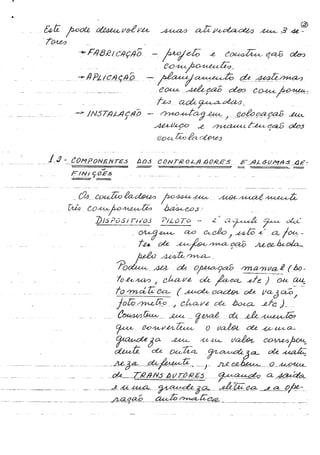 ②
Este pode desenvolver suas atividades em 3 se-
tores
→ FABRICAÇÃO - projeto e construção dos
componentes.
→ APLICAÇÃO - planejamento de sistemas
com seleção dos componen-
tes adequadas.
→ INSTALAÇÃO - montagem, colocação em
serviço e manutenção dos
controladores
1.3 - COMPONENTES DOS CONTROLADORES E ALGUMAS DE-
FINIÇÕES
Os controladores possuem normalmente
três componentes básicos:
DISPOSITIVOS PILOTO - É aquele que dá
origem ao ciclo, isto é a fon-
te de informação recebida
pelo sistema.
Podem ser de operação manual (bo-
toeiras, chave de faca etc) ou au
tomática (indicador de vazão,
fotometro, chave de boia etc).
Consistem em geral de elementos
que convertem o valor de uma
grandeza em um valor correspon
dente de outra grandeza de natu
reza diferente, recebem o nome
de TRANSDUTORES quando a saída
é uma grandeza elétrica e a ope-
ração automatica.